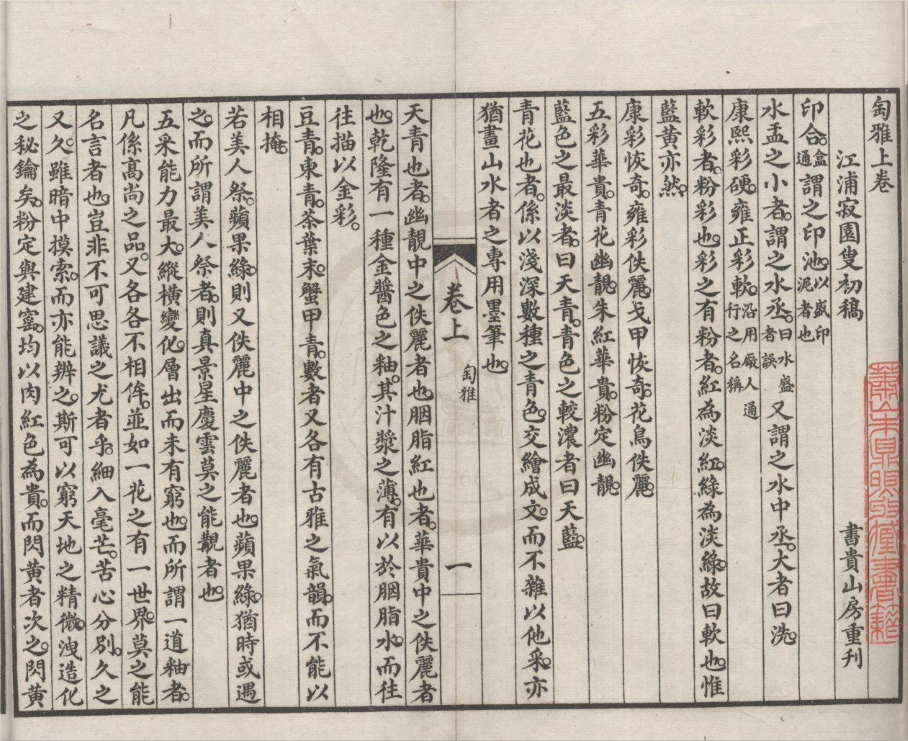 匋雅上卷
江浦寂園叟初稿　書貴山房重刊
印合。盒通謂之印池。以盛印泥者也
水盂之小者。謂之水丞。曰水盛者誤又謂之水中丞。大者曰洗。
康熙彩硬。雍正彩軟。沿用廠人通行之名稱
軟彩者。粉彩也。彩之有粉者。紅為淡紅。綠為淡綠。故曰軟也。惟
藍黃亦然。
康彩恢奇。雍彩佚麗。戈甲恢奇。花鳥佚麗。
五彩華貴。青花幽靚。朱紅華貴。粉定幽靚。
藍色之最淡者。曰天青。青色之較濃者曰天藍。
青花也者。係以淺深數種之青色。交繪成文。而不雜以他采。亦
猶畫山水者之專用墨筆也。
卷上　匋雅　一
天青也者。幽靚中之佚麗者也。胭脂紅也者。華貴中之佚麗者
也。乾隆有一種金醬色之釉。其汁漿之薄。有以於胭脂水。而往
往描以金彩。
豆青。東青。茶葉末。蟹甲青。數者又各有古雅之氣韻。而不能以
相掩。
若美人祭。蘋果綠。則又佚麗中之佚麗者也。蘋果綠。猶時或遇
之。而所謂美人祭者。則真景星慶雲莫之能覯者也。
五采能力最大。縱橫變化。層出而未有窮也。而所謂一道釉者。
凡係高尚之品。又各各不相侔。並如一花之有一世界。莫之能
名言者也。豈非不可思議之尤者乎。細入毫芒。苦心分別。久之
又久。雖暗中摸索。而亦能辨之。斯可以窮天地之精微。洩造化
之秘鑰矣。粉定與建窰。均以肉紅色為貴。而閃黃者次之。閃黃